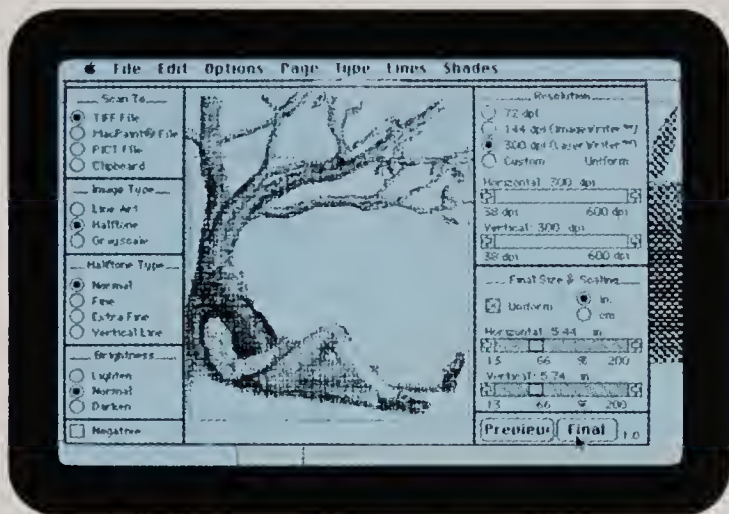 File Edit Options Page Type Lines Shades
Scan To
TIFF File
MacPaint® File
PICT File
Clipboard
Image Type
Line Art
Halftone
Grayscale
Halftone Type
Normal
Fine
Extra Fine
Vertical Line
Brightness
Lighten
Normal
Darken
Negative
Resolution
72 dpi
144 dpi (ImageWriter™)
300 dpi (LaserWriter™)
Custom Uniform
Horizontal: 300 dpi
38 dpi 600 dpi
Vertical: 300 dpi
38 dpi 600 dpi
Final Size & Scaling
Uniform in.
cm
Horizontal: 5.44 in
13 66 % 200
Vertical: 5.74 in
13 66 % 200
Preview Final 1.0